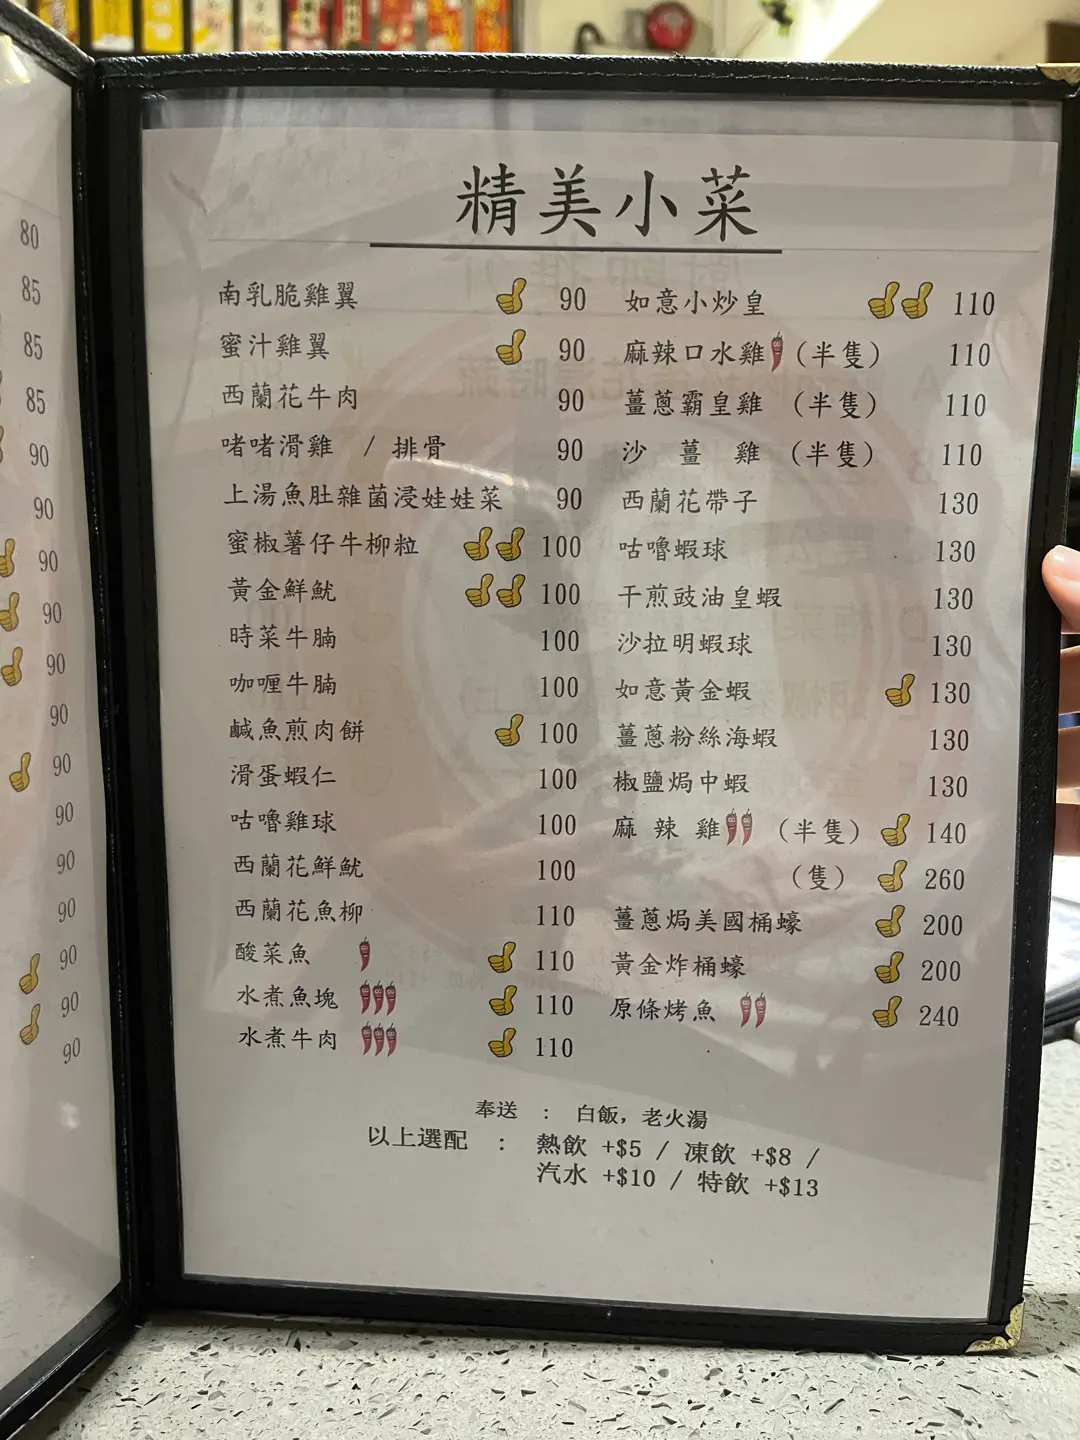 精美小菜
南乳脆雞翼 90
蜜汁雞翼 90
西蘭花牛肉 90
啫啫滑雞 / 排骨 90
上湯魚肚雜菌浸娃娃菜 90
蜜椒薯仔牛柳粒 100
黃金鮮魷 100
時菜牛腩 100
咖喱牛腩 100
鹹魚煎肉餅 100
滑蛋蝦仁 100
咕嚕雞球 100
西蘭花鮮魷 100
西蘭花魚柳 110
酸菜魚 110
水煮魚塊 110
水煮牛肉 110
如意小炒皇 110
麻辣口水雞 (半隻) 110
薑蔥霸皇雞 (半隻) 110
沙薑雞 (半隻) 110
西蘭花帶子 130
咕嚕蝦球 130
干煎豉油皇蝦 130
沙拉明蝦球 130
如意黃金蝦 130
薑蔥粉絲海蝦 130
椒鹽焗中蝦 130
麻辣雞 (半隻) 140
(隻) 260
薑蔥焗美國桶蠔 200
黃金炸桶蠔 200
原條烤魚 240
奉送 : 白飯, 老火湯
以上選配 : 熱飲 +$5 / 凍飲 +$8 /
汽水 +$10 / 特飲 +$13
80
85
85
85
90
90
90
90
90
90
90
90
90
90
90
90
90